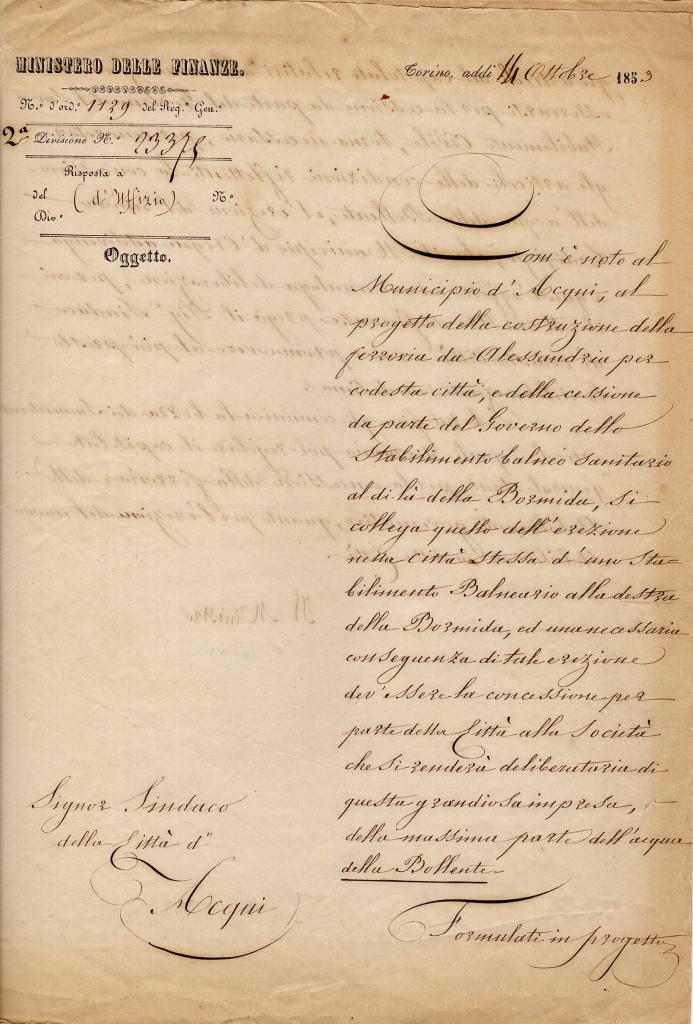 MINISTERO DELLE FINANZE.
Torino, addì 14 Ottobre 1853
N.º d'ord.º 1129 del Reg.º Gen.º
2ª Divisione N.º 23375
Risposta a
del (d'Uffizio) N.º
Div.º
Oggetto.
Com'è noto al
Municipio d'Acqui, al
progetto della costruzione della
ferrovia da Alessandria per
codesta città, e della cessione
da parte del Governo dello
Stabilimento balneo sanitario
al di là della Bormida, si
collega quello dell'erezione
nella città stessa d'uno Sta=
bilimento Balneario alla destra
della Bormida, ed una necessaria
conseguenza di tale erezione
dev'essere la concessione per
parte della Città alla Società
che si renderà deliberataria di
questa grandiosa impresa,
della massima parte dell'acqua
della Bollente
Formulati in progetto
Signor Sindaco
della Città d'
Acqui
Il Ministro